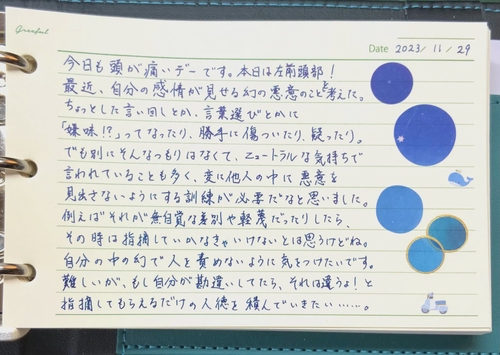 Greeful
Date 2023/11/29
今日も頭が痛いデーです。本日は左前頭部!
最近、自分の感情が見せる幻の悪意のことを考えた。
ちょっとした言い回しとか、言葉選びとかに
「嫌味!?」ってなったり、勝手に傷ついたり、疑ったり。
でも別にそんなつもりはなくて、ニュートラルな気持ちで
言われていることも多く、変に他人の中に悪意を
見出さないようにする訓練が必要だなと思いました。
例えばそれが無自覚な差別や軽蔑だったりしたら、
その時は指摘していかなきゃいけないとは思うけどね。
自分の中の幻で人を責めないように気をつけたいです。
難しいが、もし自分が勘違いしてたら、それは違うよ!と
指摘してもらえるだけの人徳を積んでいきたい……。